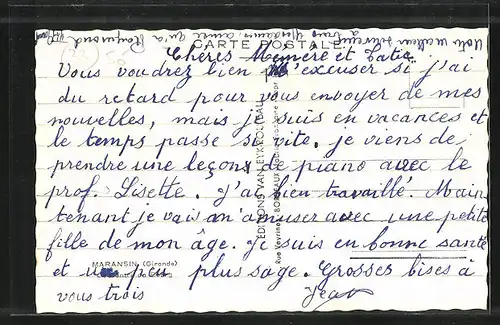 CARTE POSTALE
Chères Mémère et Tatie
Vous voudrez bien m'excuser si j'ai
du retard pour vous envoyer de mes
nouvelles, mais je suis en vacances et
le temps passe si vite. je viens de
prendre une leçons de piano avec le
prof. Lisette. J'ai bien travaillé. Main
tenant je vais m'amuser avec une petite
fille de mon âge. Je suis en bonne santé
et un peu plus sage. Grosses bises à
vous trois Jean
MARANSIN (Gironde)
EDITIONS VAN EYK-ROLDALL
Rue Veyrines BORDEAUX